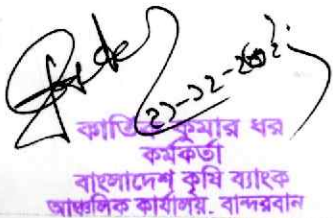 কার্তিক কুমার ধর
কর্মকর্তা
বাংলাদেশ কৃষি ব্যাংক
আঞ্চলিক কার্যালয়. বান্দরবান